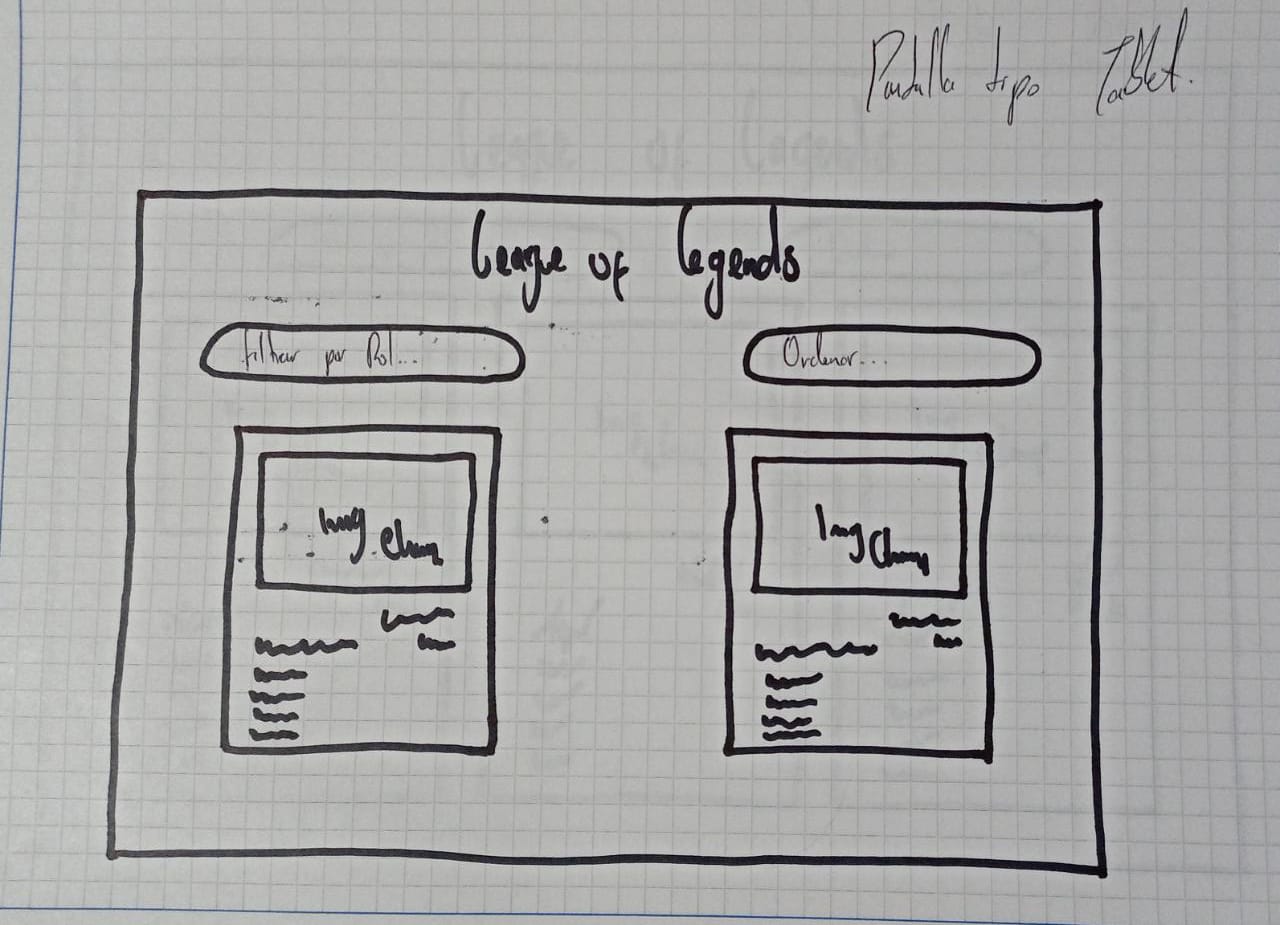 Pantalla tipo Tablet.
League of Legends
Filtrar por Rol...
Ordenar...
Img Champ
Img Champ